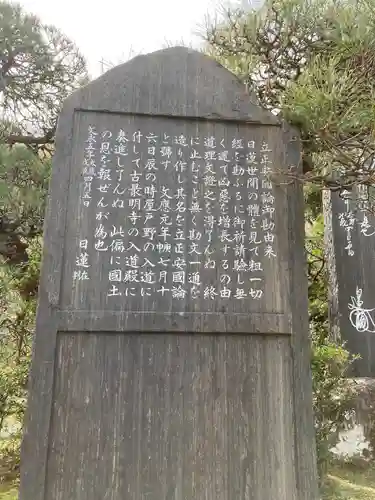 立正安国論御勘由来
日蓮世間の体を見て粗一切
経を勘ふるに御祈請験し無
く還て凶悪を増長するの由
道理文證之を得了んぬ 終
に止むこと無く勘文一通を
造り作し其名を立正安國論
と號す 文應元年 七月十
六日辰の時屋戸野の入道に
付して古最明寺の入道殿に
奏進し了んぬ 此偏に國土
の恩を報ぜんが為也
文永五年 四月五日
日蓮